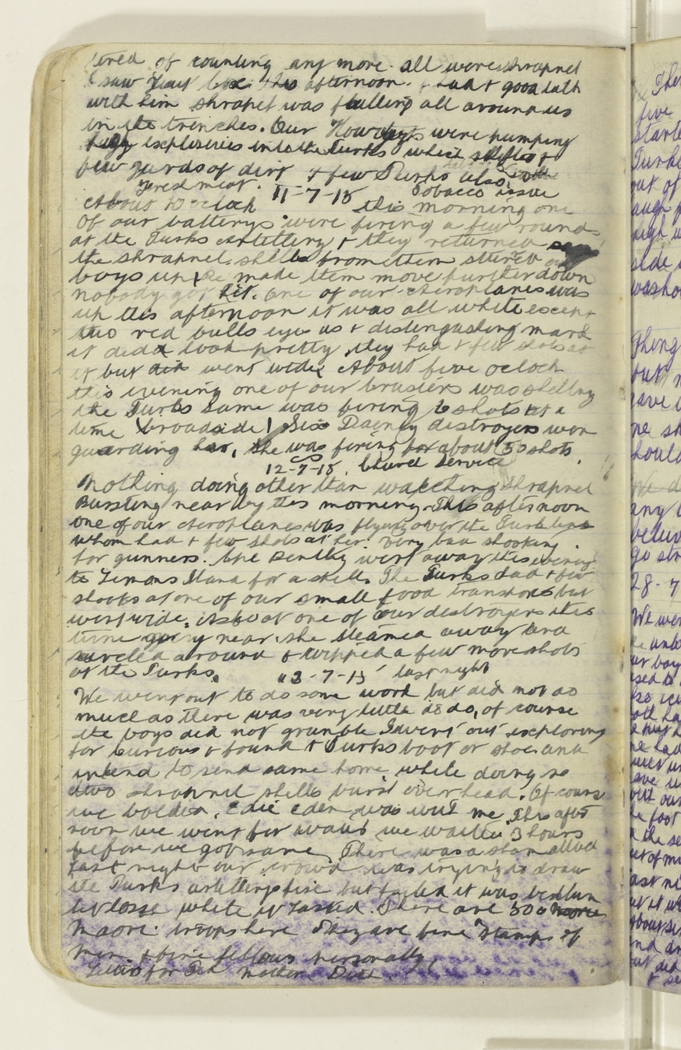 tired of counting any more. all were shrapnel
I saw this afternoon. & had a good talk
with him shrapnel was falling all around us
in the trenches. Our Howitzers were pumping
explosives into the Turks which shifted a
few yards of dirt & few Turks also.
Fresh meat. 11-7-15 Tobacco issue
About 10 oclock this morning one
of our batterys were firing a few rounds
at the Turks artillery & they returned
the shrapnel shells from them stirred our
boys up & made them move further down
nobody got hit. One of our aeroplanes was
up this afternoon it was all white except
two red bulls eyes as a distinguishing mark
it did look pretty, they had a few shots at
it but went wide. About five oclock
this evening one of our cruisers was shelling
the Turks same was firing 6 shots at a
time broadside! Six Dainty destroyers were
guarding her, she was firing for about 50 shots.
12-7-15. Church Service
Nothing doing other than watching Shrapnel
Bursting nearby this morning. This afternoon
one of our aeroplanes was flying over the Turks lines
whom had a few shots at her. Very bad shooking
for gunners. went away this evening
to Limnos Iland for a spell. The Turks had a few
shots at one of our small food transports but
went wide, also at one of our destroyers this
time very near. she steamed away and
circled around & whipped a few more shots
at the Turks.
13-7-15 last night
We went out to do some work but did not do
much as there was very little to do, of course
the boys did not grumble I went out exploring
for curious & found a Turks boot or shoe, and
intend to send same home while doing so
two shrapnel shells burst overhead. Of course
we bolted, Edie Eden was with me. This after
noon we went for water we waited 3 hours
before we got same. There was a sham attack
last night our crowd was trying to draw
the Turks artillery fire but failed it was bedlam
let loose while it lasted. There are 500
Maori troops here They are fine stamps of
men. & fine fellows personally